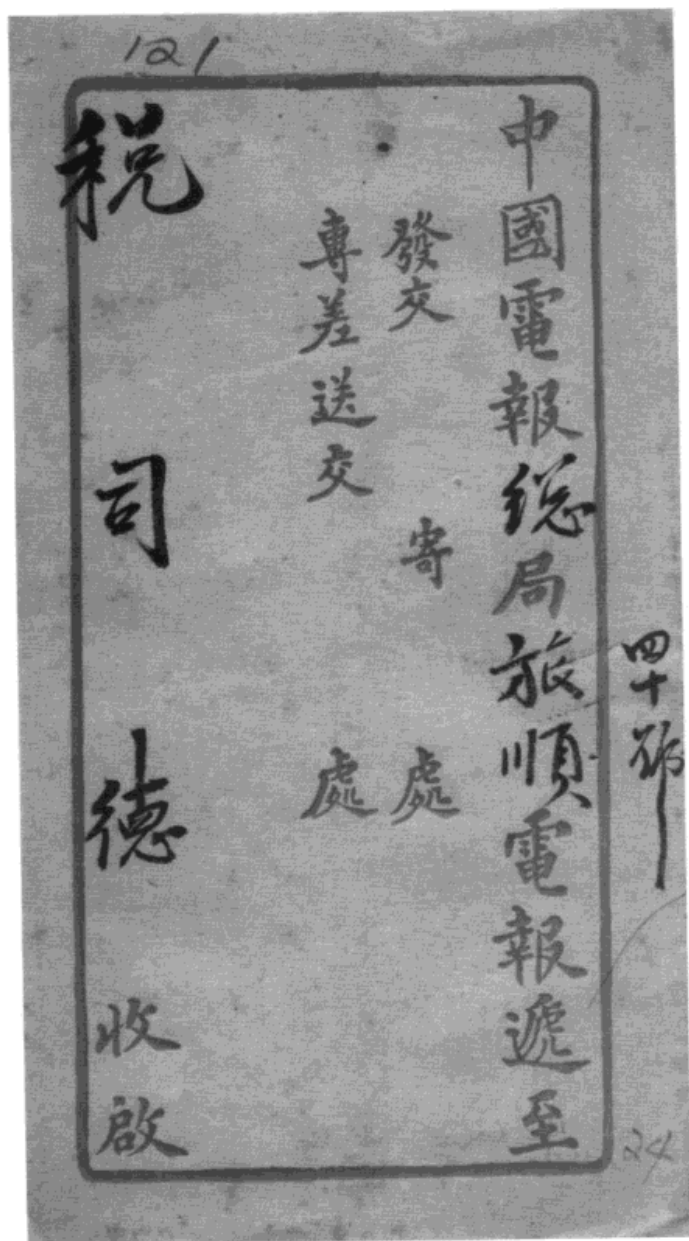 121
四十號
中國電報総局旅順電報遞至
發交 寄 處
專差送交 處
税司德 收啟
24